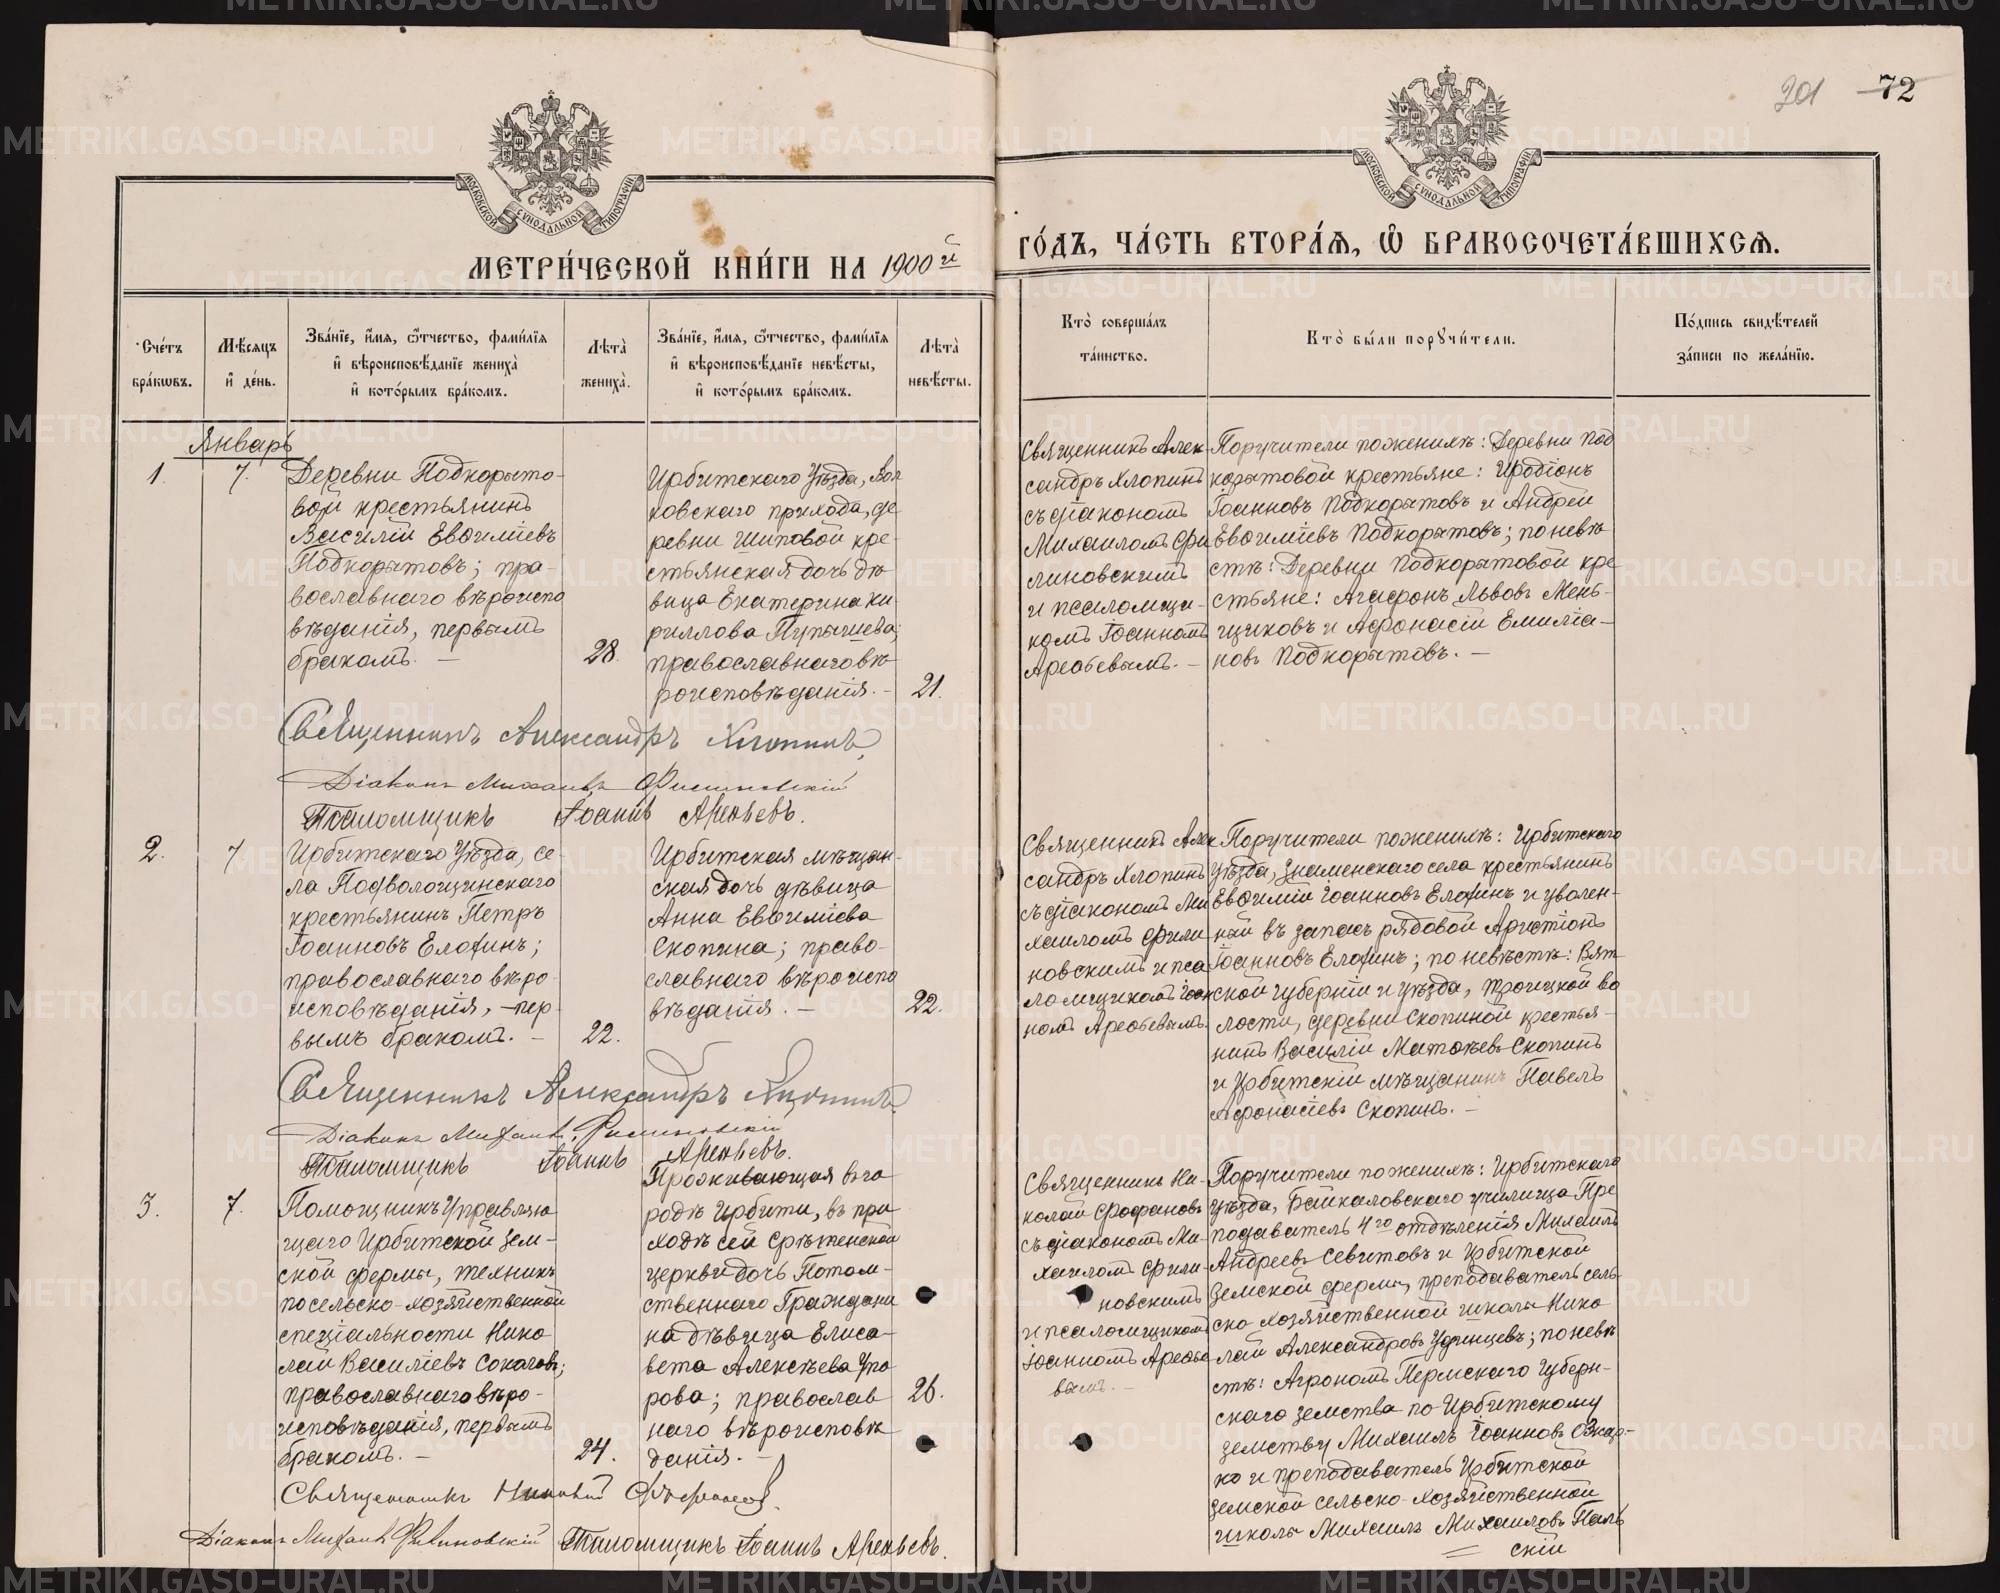 201 72
МОСКОВСКОЙ СѴНОДАЛЬНОЙ ТИПОГРАФІИ
МОСКОВСКОЙ СѴНОДАЛЬНОЙ ТИПОГРАФІИ
МЕТРИ́ЧЕСКОЙ КНИ́ГИ НА 1900й
ГО́ДЪ, ЧА́СТЬ ВТОРА́Ѧ, Ѽ БРАКОСОЧЕТА́ВШИХСѦ.
Сче́тъ бра́кѡвъ.
Мѣ́сяцъ и҆ де́нь.
Зва́нїе, и҆́мѧ, ѻ҆́тчество, фами́лїѧ
и҆ вѣроисповѣ́данїе жениха̀
и҆ кото́рымъ бра́комъ.
Лѣта̀ жениха̀.
Зва́нїе, и҆́мѧ, ѻ҆́тчество, фами́лїѧ
и҆ вѣроисповѣ́данїе невѣ́сты,
и҆ кото́рымъ бра́комъ.
Лѣта̀ невѣ́сты.
Кто̀ соверша́лъ
та́инство.
Кто̀ бы́ли порꙋчи́тели.
По́дпись свидѣ́телей
за́писи по жела́нїю.
Январь
1.
7.
Деревни Подкорыто-
вой крестьянинъ
Василій Евѳиміевъ
Подкорытовъ; пра-
вославнаго вѣроиспо
вѣданія, первымъ
бракомъ. —
28.
Ирбитскаго Уѣзда, Вол
ковскаго прихода, де
ревни Шиповой кре-
стьянская дочь дѣ
вица Екатерина Ки-
риллова Пупышева;
православнаго вѣ
роисповѣданія. —
21.
Священникъ Алек
сандръ Хлопинъ
съ діакономъ
Михаиломъ Фи
линовскимъ
и псаломщи-
комъ Іоанномъ
Арефьевымъ. —
Поручители по женихѣ: Деревни Под
корытовой крестьяне: Иродіонъ
Іоанновъ Подкорытовъ и Андрей
Евѳиміевъ Подкорытовъ; по невѣ
стѣ: Деревни Подкорытовой кре
стьяне: Агафонъ Львовъ Мень-
щиковъ и Афонасій Емиліа-
новъ Подкорытовъ. —
Священникъ Александръ Хлопинъ
Діаконъ Михаилъ Филиновскій
Псаломщикъ Іоаннъ Арефьевъ.
2.
7
Ирбитскаго Уѣзда, се-
ла Подволощинскаго
крестьянинъ Петръ
Іоанновъ Елохинъ;
православнаго вѣро-
исповѣданія, — пер
вымъ бракомъ. —
22.
Ирбитская мѣщан-
ская дочь дѣвица
Анна Евѳиміева
Скопина; право-
славнаго вѣроиспо
вѣданія. —
22.
Священникъ Алек
сандръ Хлопинъ
съ діакономъ Ми
хаиломъ Фили
новскимъ и пса
ломщикомъ Іоан
номъ Арефьевымъ.
Поручители по женихѣ: Ирбитскаго
Уѣзда, Знаменскаго села крестьянинъ
Евѳимій Іоанновъ Елохинъ и уволен-
ный въ запасъ рядовой Аристіонъ
Іоанновъ Елохинъ; по невѣстѣ: Вят
ской Губерніи и Уѣзда, Троицкой во
лости, деревни Скопиной крестья-
нинъ Василій Матѳѣевъ Скопинъ
и Ирбитскій мѣщанинъ Павелъ
Афонасіевъ Скопинъ. —
Священникъ Александръ Хлопинъ
Діаконъ Михаилъ Филиновскій
Псаломщикъ Іоаннъ Арефьевъ.
3.
7.
Помощникъ Управляю
щаго Ирбитской Зем-
ской фермы, техникъ
по сельско-хозяйственной
спеціальности Нико
лай Василіевъ Соколовъ;
православнаго вѣро-
исповѣданія, первымъ
бракомъ. —
24.
Проживающая въ го
родѣ Ирбити, въ при
ходѣ сей Срѣтенской
церкви дочь Потом-
ственнаго Граждани
на дѣвица Елиса-
вета Алексѣева Упо
рова; православ
наго вѣроисповѣ
данія. —
26.
Священникъ Ни-
колай Фофановъ
съ діакономъ Ми-
хаиломъ Фили-
новскимъ
и псаломщикомъ
Іоанномъ Арефье
вымъ. —
Поручители по женихѣ: Ирбитскаго
Уѣзда, Байкаловскаго училища Пре
подаватель 4го отдѣленія Михаилъ
Андреевъ Севитовъ и Ирбитской
Земской фермы, преподаватель сель-
ско хозяйственной школы Нико
лай Александровъ Удринцевъ; по невѣ
стѣ: Агрономъ Пермскаго Губерн-
скаго земства по Ирбитскому
земству Михаилъ Іоанновъ
ко и преподаватель Ирбитской
Земской сельско-хозяйственной
школы Михаилъ Михаиловъ Поль
скій
Священникъ Николай Фофановъ.
Діаконъ Михаилъ Филиновскій Псаломщикъ Іоаннъ Арефьевъ.
METRIKI.GASO-URAL.RU